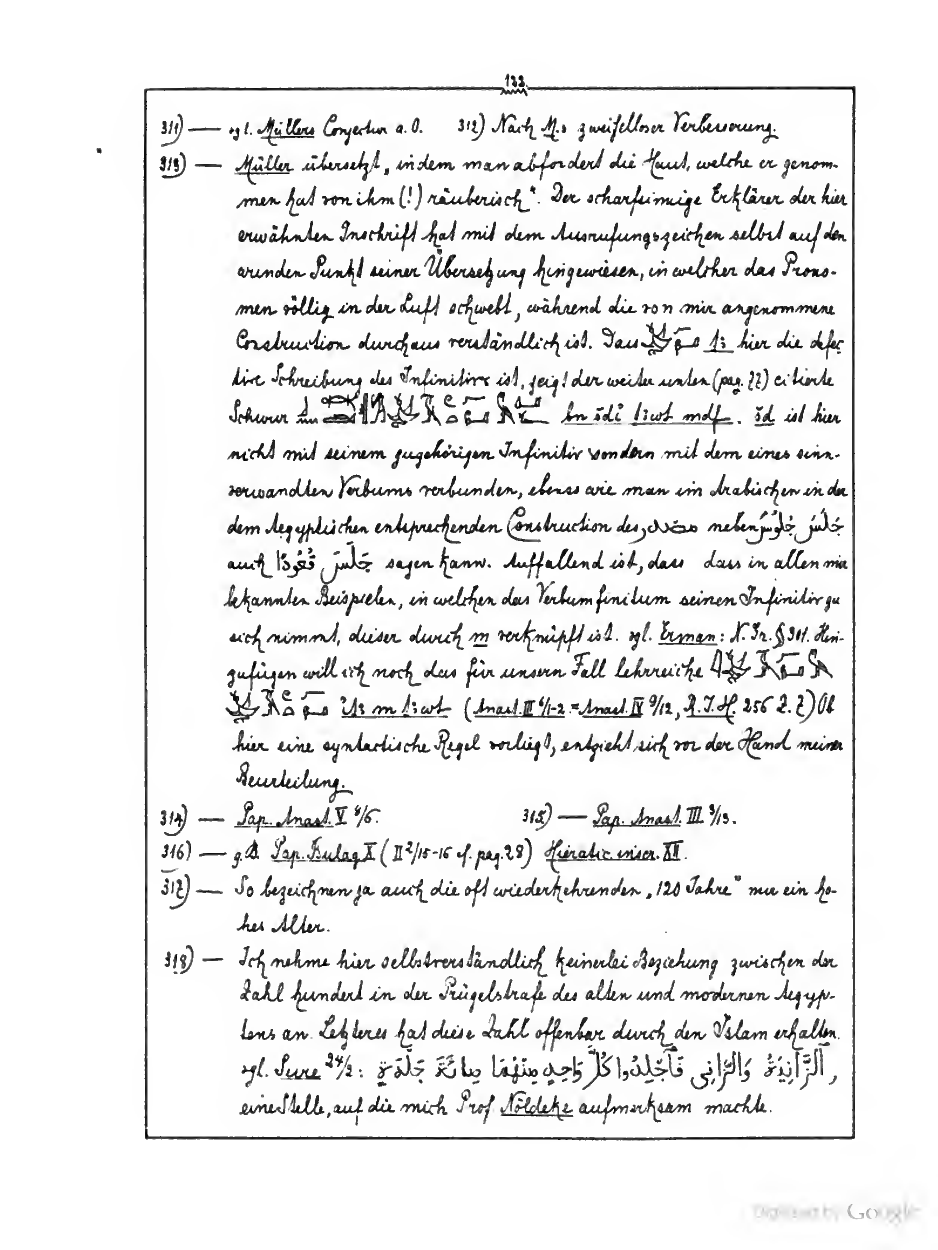 132.
311) — vgl. Müllers Conjectur a. O. 312) Nach M.s zweifelloser Verbesserung.
313) — Müller übersetzt „indem man abfordert die Haut, welche er genom-
men hat von ihm (!) räuberisch“. Der scharfsinnige Erklärer der hier
erwähnten Inschrift hat mit dem Ausrufungszeichen selbst auf den
wunden Punkt seiner Übersetzung hingewiesen, in welcher das Prono-
men völlig in der Luft schwebt, während die von mir angenommene
Construction durchaus verständlich ist. Dass hier die defec
tive Schreibung des Infinitivs ist, zeigt der weiter unten (pag. ??) citierte
Schwur bn šdî t3wt mdf. šd ist hier
nicht mit seinem zugehörigen Infinitiv sondern mit dem eines sinn-
verwandten Verbums verbunden, ebenso wie man im Arabischen in der
dem Aegyptischen entsprechenden Construction des مصدر neben جَلَسَ جُلُوسًا
auch جَلَسَ قُعُودًا sagen kann. Auffallend ist, dass dass in allen mir
bekannten Beispielen, in welchen das Verbum finitum seinen Infinitiv zu
sich nimmt, dieser durch m verknüpft ist. vgl. Erman: N. Gr. § 301. Hin-
zufügen will ich noch das für unsern Fall lehrreiche
m t3wt (Anast. III 6/1-2 = Anast. IV 9/12, R. I. H. 256 Z. 2) Ob
hier eine syntactische Regel vorliegt, entzieht sich vor der Hand meiner
Beurteilung.
314) — Pap. Anast. V 8/6. 315) — Pap. Anast. III 3/13.
316) — z. B. Pap. Bulaq X (II 2/15-16 cf. pag. 28) Hieratic inscr. XV.
317) — So bezeichnen ja auch die oft wiederkehrenden „120 Jahre“ nur ein ho-
hes Alter.
318) — Ich nehme hier selbstverständlich keinerlei Beziehung zwischen der
Zahl hundert in der Prügelstrafe des alten und modernen Aegyp-
tens an. Letzteres hat diese Zahl offenbar durch den Islam erhalten.
vgl. Sure 24/2: اَلزَّانِيَةُ وَالزَّانِى فَاجْلِدُوا كُلَّ وَاحِدٍ مِنْهُمَا مِائَةَ جَلْدَةٍ,
eine Stelle, auf die mich Prof. Nöldeke aufmerksam machte.
Digitized by Google